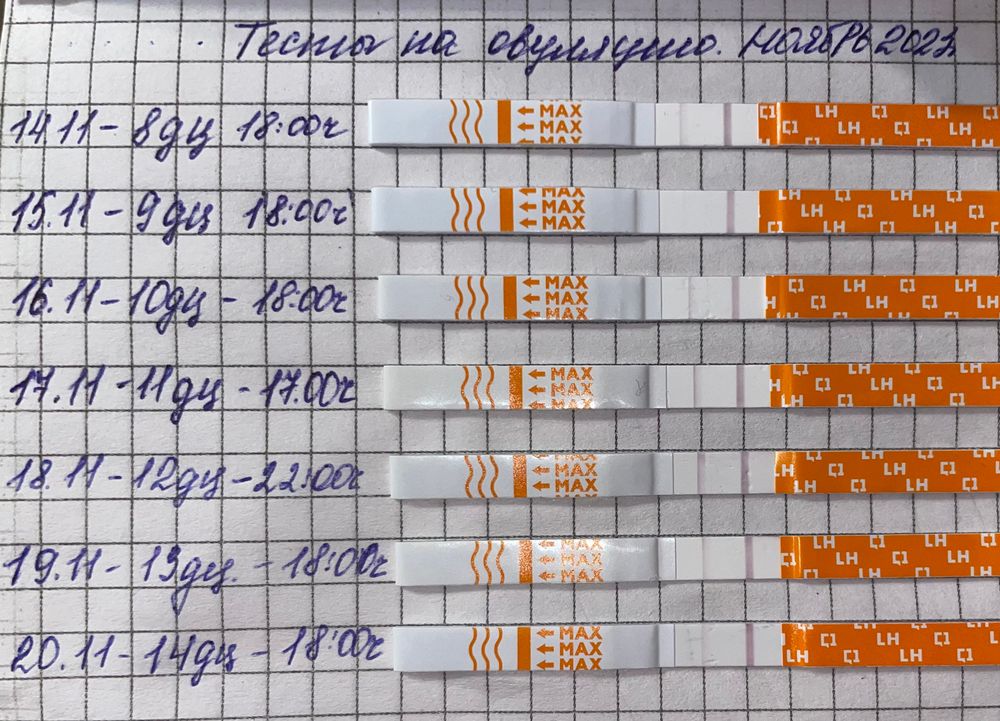 Тесты на овуляцию. НОЯБРЬ 2023г.
14.11 - 8дц 18:00ч
MAX
MAX
MAX
LH LH LH LH
15.11 - 9дц 18:00ч
MAX
MAX
MAX
LH LH LH LH
16.11 - 10дц - 18:00ч
MAX
MAX
MAX
LH LH LH LH
17.11 - 11дц - 17.00ч
MAX
MAX
MAX
LH LH LH LH
18.11 - 12дц - 22:00ч
MAX
MAX
MAX
LH LH LH LH
19.11 - 13дц. - 18:00ч
MAX
MAX
MAX
LH LH LH LH
20.11 - 14дц - 18:00ч
MAX
MAX
MAX
LH LH LH LH